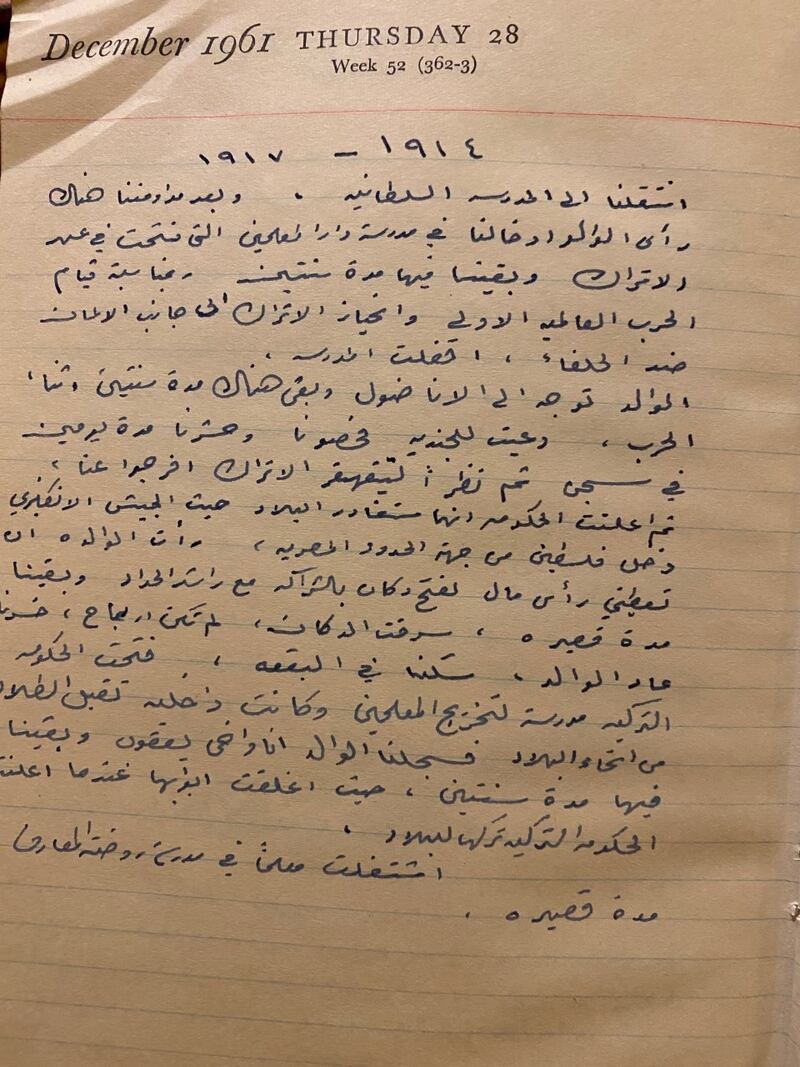 December 1961 THURSDAY 28
Week 52 (362-3)
١٩١٤ – ١٩١٧
انتقلنا الى المدرسه السلطانيه ، وبعد مداومتنا هناك
رأى الوالد ادخالنا في مدرسة دار المعلمين التي فتحت في عهد
الاتراك وبقينا فيها مدة سنتين وبمناسبة قيام
الحرب العالميه الاولى وانحياز الاتراك الى جانب الالمان
ضد الحلفاء ، اقفلت المدرسه .
الوالد توجه الى الاناضول وبقى هناك مدة سنتين اثناء
الحرب ، دعيت للجنديه فحصونا وحشرنا مدة يومين
في سجن ثم نظراً لتقهقر الاتراك افرجوا عنا ،
ثم اعلنت الحكومه انها ستغادر البلاد حيث الجيش الانكليزي
دخل فلسطين من جهة الحدود المصريه ، رأت الوالده ان
تعطيني رأس مال لفتح دكان بالشراكه مع راشد الحداد وبقينا
مدة قصيره ، سرقت الدكان ، لم تكن ارباح ، خسرنا
عاد الوالد ، سكنا في البقعه ، فتحت الحكومه
التركيه مدرسة لتخريج المعلمين وكانت داخليه تقبل الطلاب
من انحاء البلاد فسجلنا الوالد انا واخي يعقوب وبقينا
فيها مدة سنتين ، حيث اغلقت ابوابها عندما اعلنت
الحكومه التركيه تركها للبلاد .
اشتغلت معلماً في مدرسة روضة المعارف
مدة قصيره .